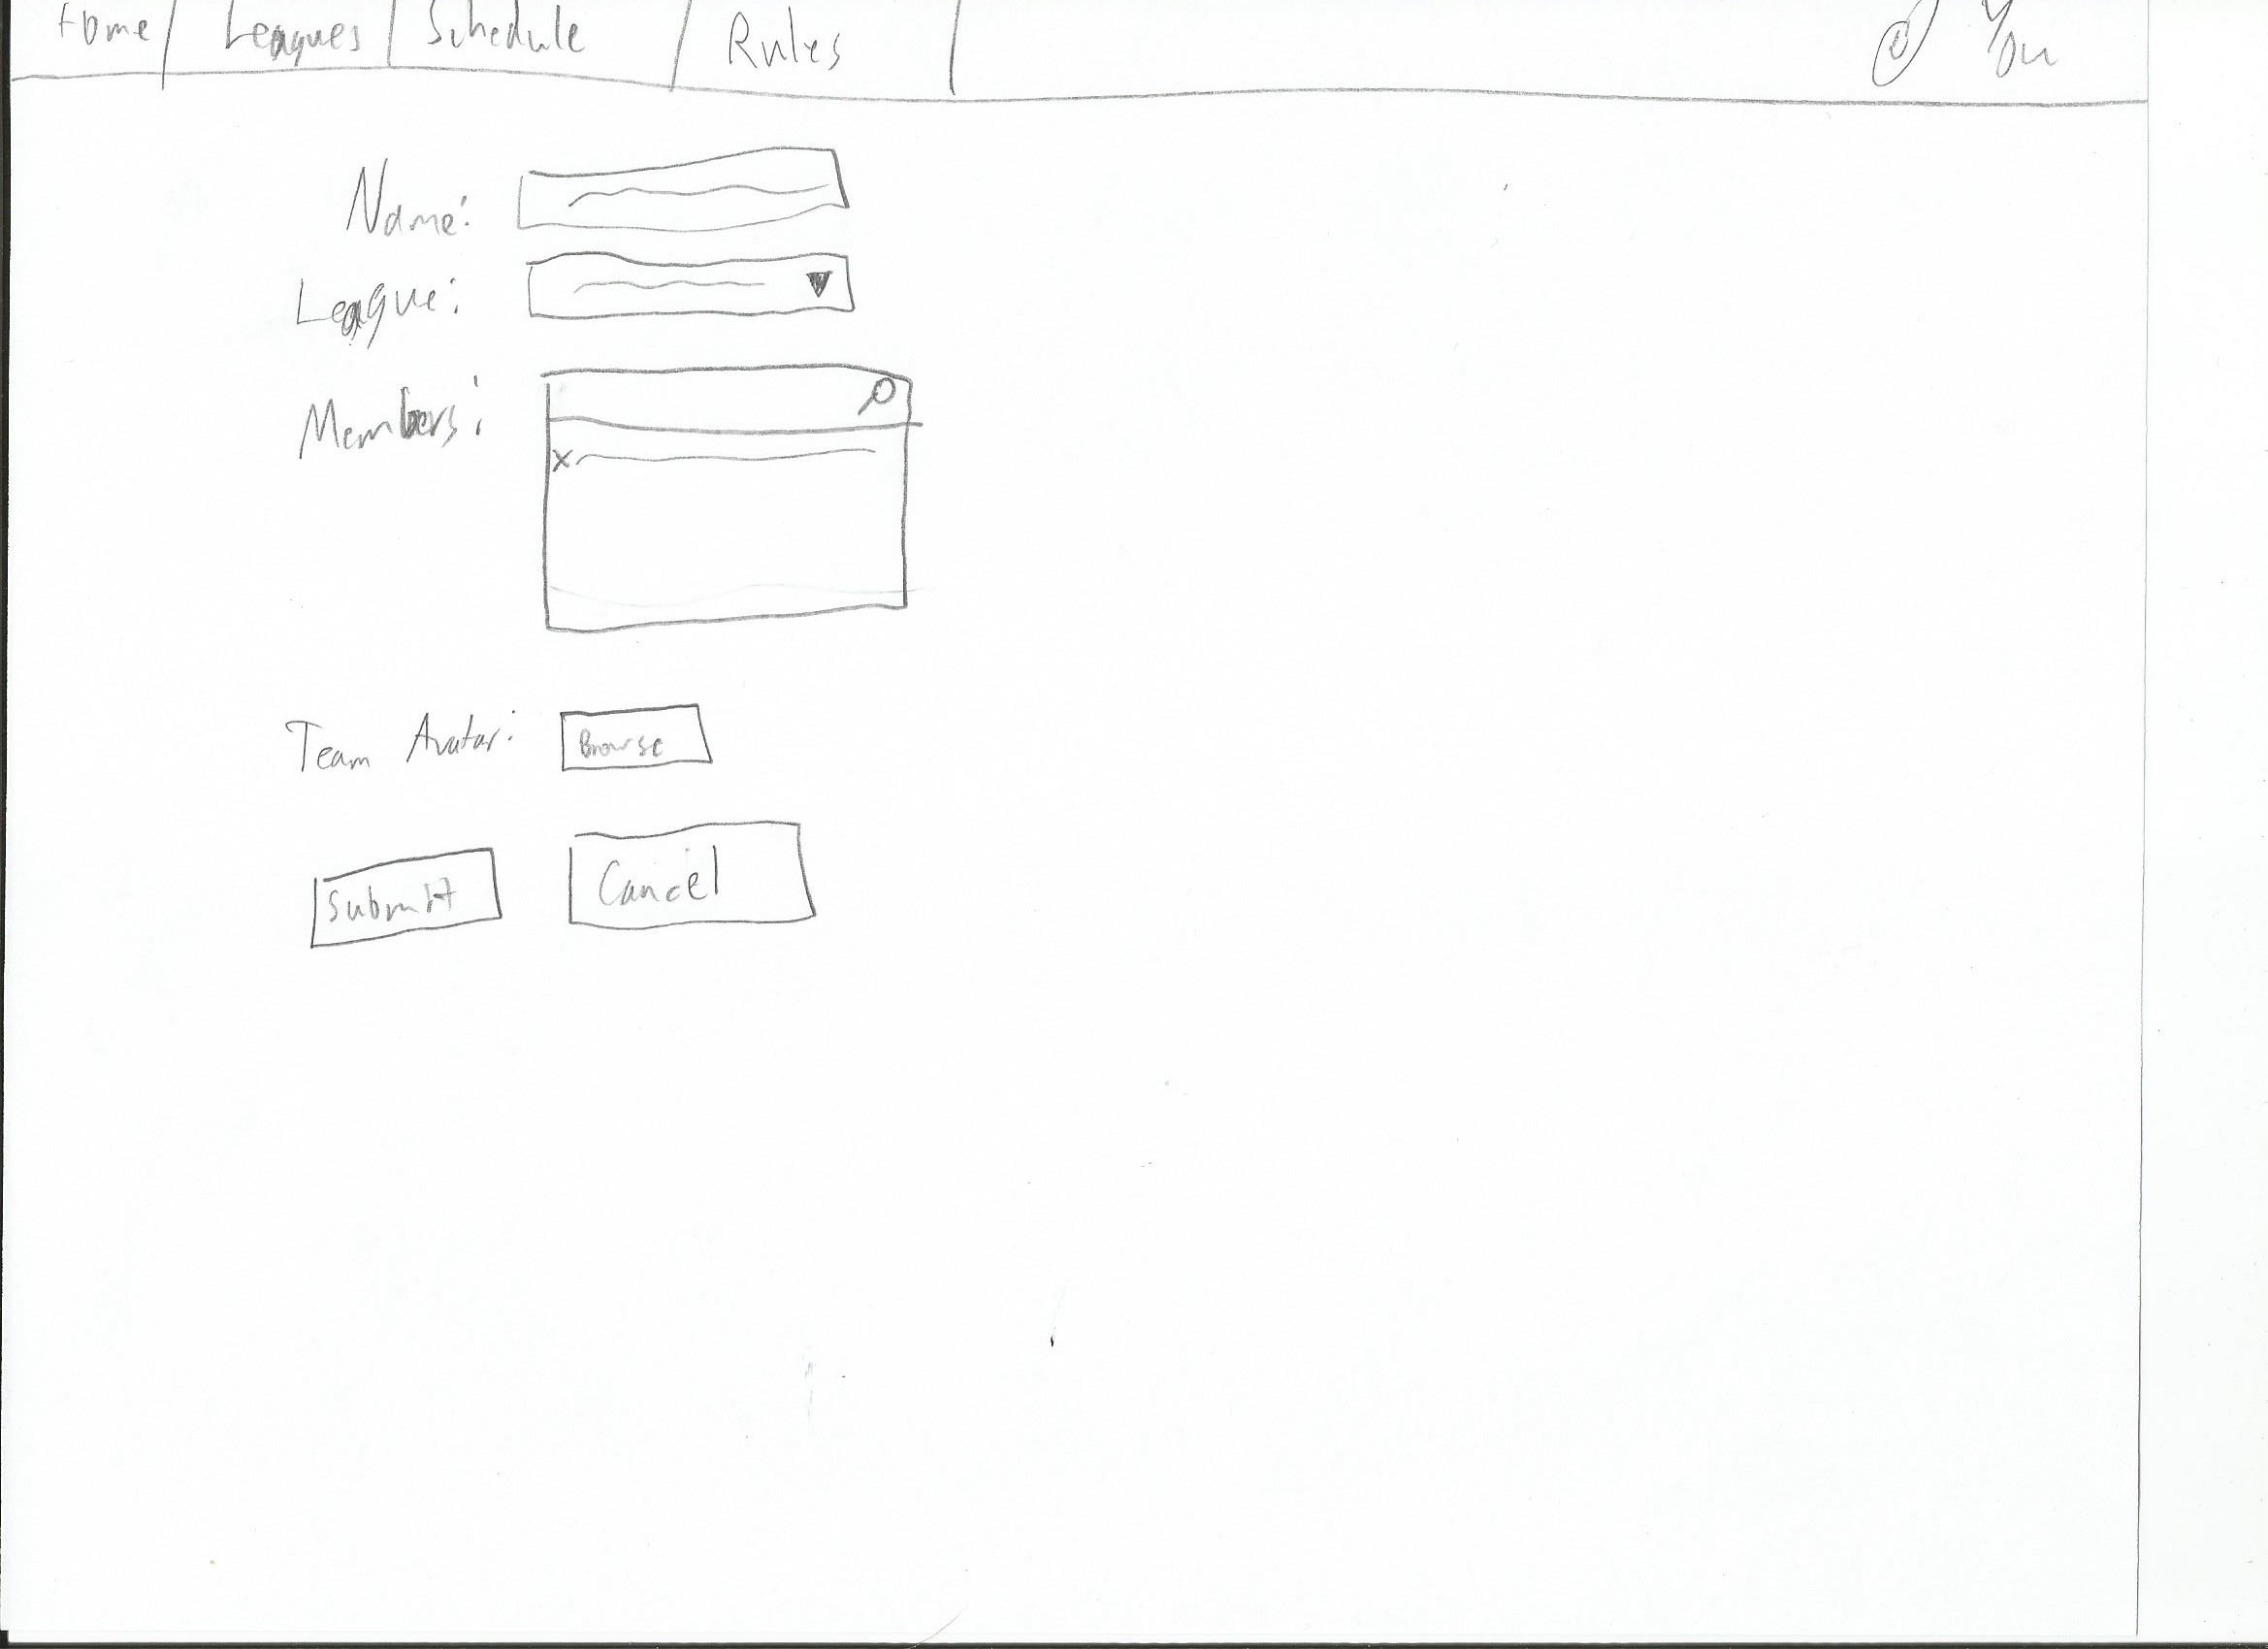 Home Leagues Schedule Rules You
Name:
League:
Members:
x
Team Avatar: Browse
Submit Cancel